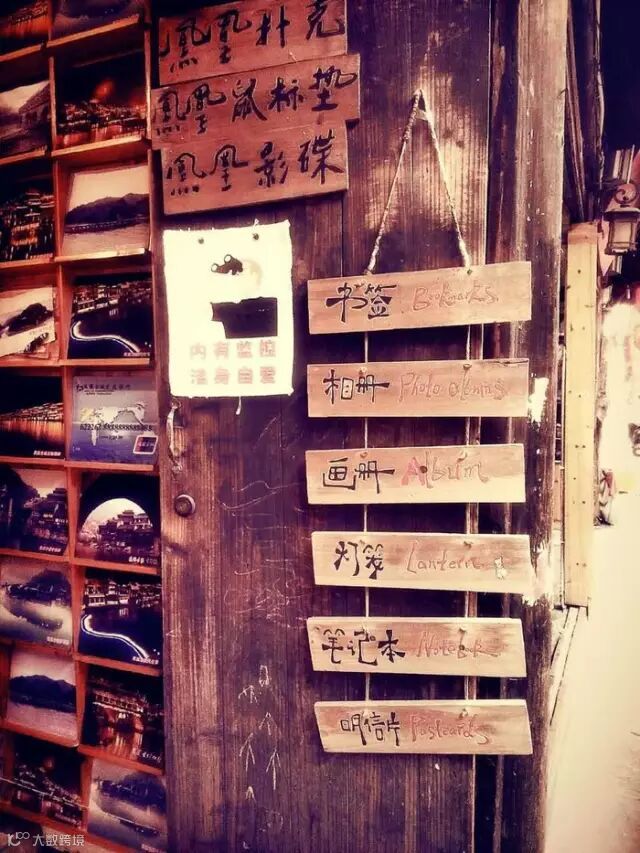 凤凰扑克
凤凰鼠标垫
凤凰影碟
内有监控
洁身自爱
书签 Bookmarks
相册 Photo albums
画册 Album
灯笼 Lantern
笔记本 Notebook
明信片 Postcards
大数跨境